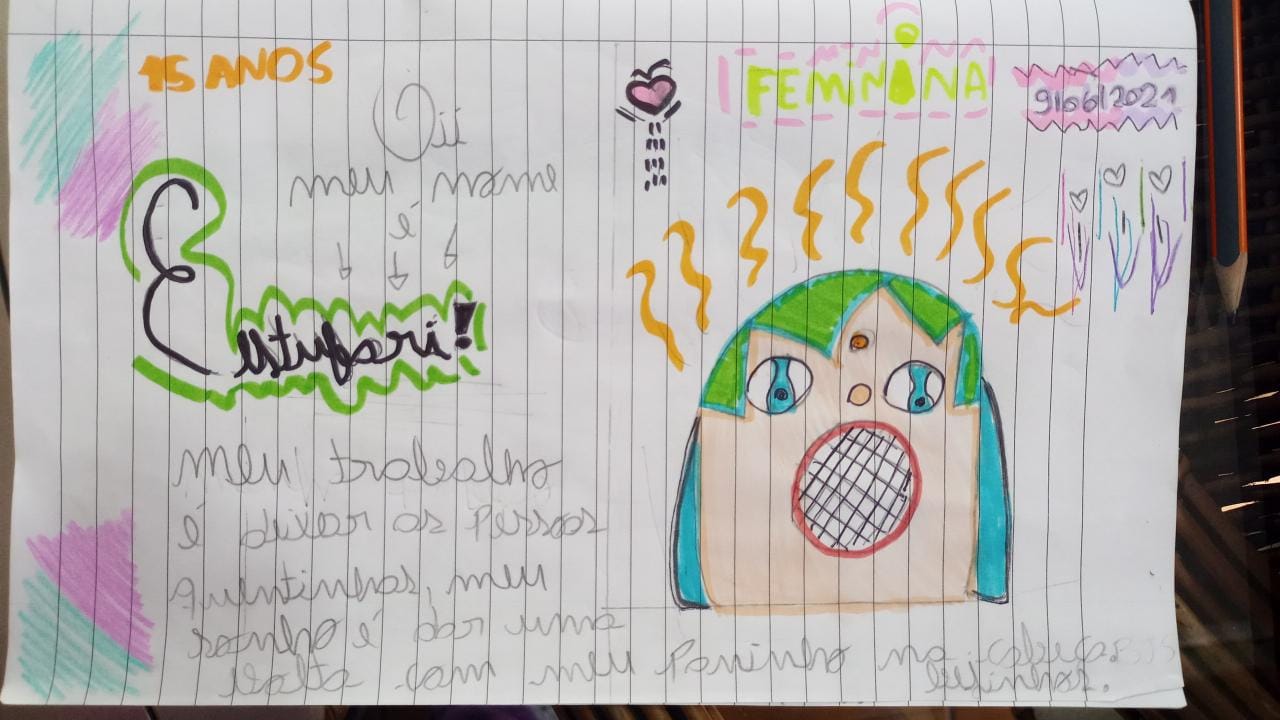 15 ANOS
FEMININA
FEMININA
9/06/2021
Oii
meu nome
é
Estufori!
meu trabalho
é deixar as Pessoas
quentinhas, meu
sonho é dar uma
volta com meu Paninho na cabeça. BJS